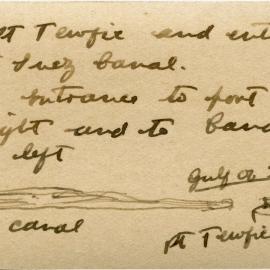 Pt Tewfic and ent
Suez Canal.
entrance to port
ight and to Cana
left
gulf of
canal
pt Tewfic